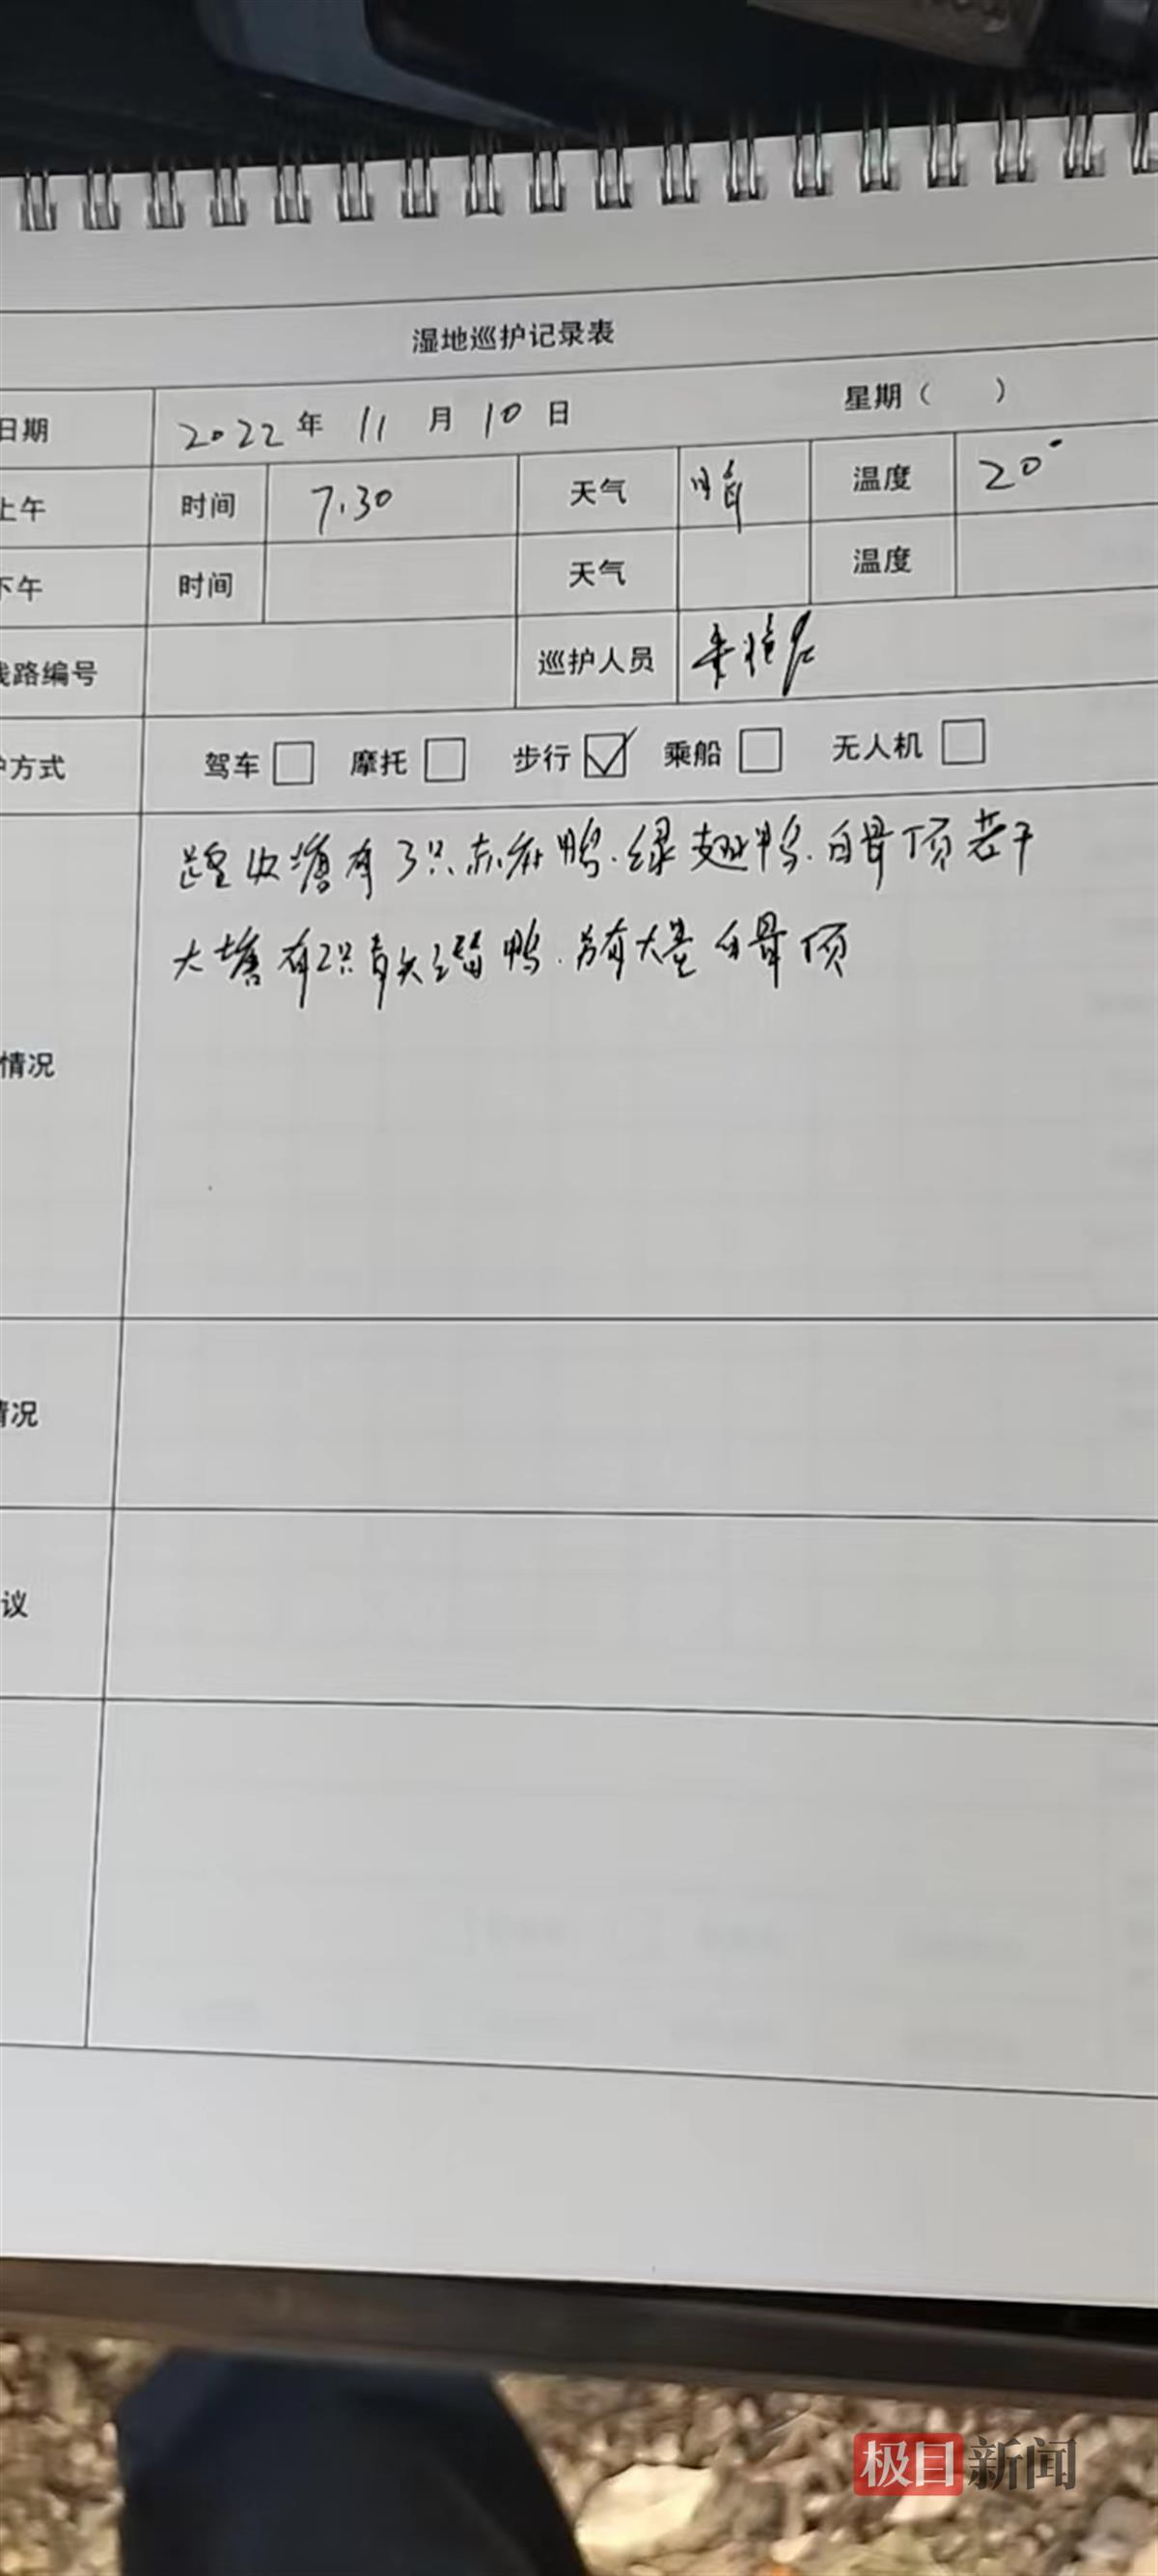 湿地巡护记录表
日期 2022年 11月 10日 星期（ ）
上午 时间 7.30 天气 晴 温度 20°
下午 时间 天气 温度
线路编号 巡护人员
方式 驾车 摩托 步行 ☑ 乘船 无人机
塘有3只赤麻鸭.绿翅鸭.白骨顶若干
大塘有2只青头潜鸭.另有大量白骨顶
情况
情况
议
极目新闻